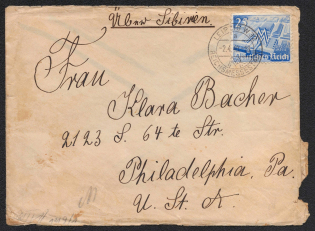 Über Sibirien
25
Deutsches Reich
Frau
Klara Bacher
2123 S. 64 te Str.
Philadelphia, Pa.
U. S. A.